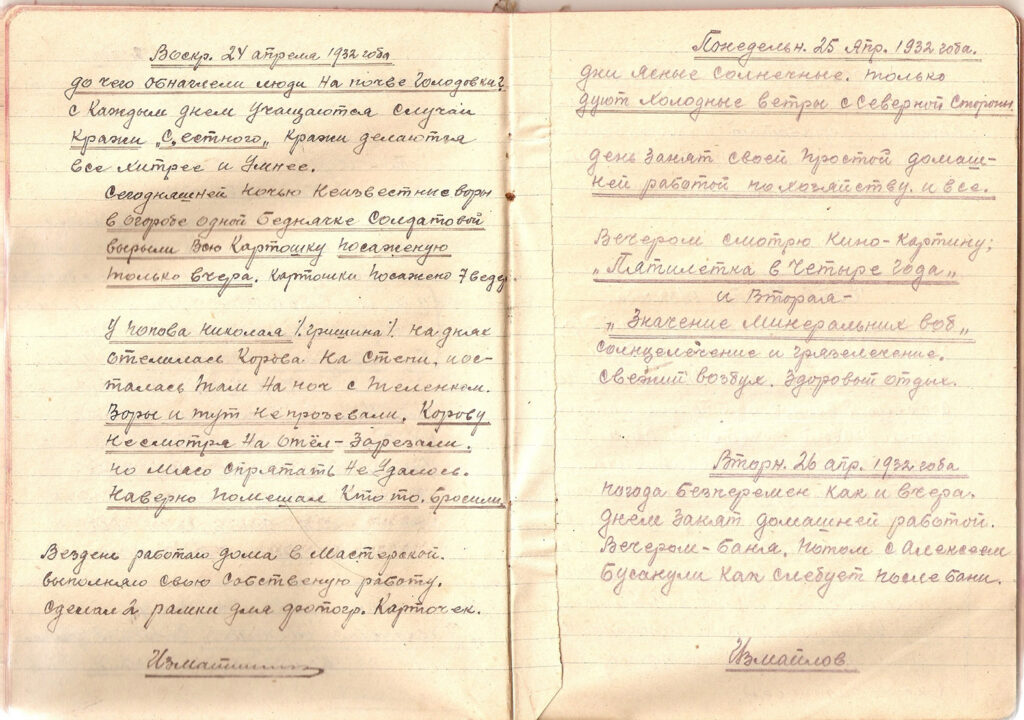 Воскр. 24 апреля 1932 года
до чего обнаглели люди на почве голодовки?
с каждым днем учащаются случаи
кражи „С,естного„ кражи делаются
все хитрее и умнее.
Сегодняшней ночью неизвестные воры
в огороде одной беднячке Солдатовой
вырыли всю картошку посаженую
только вчера. картошки посажено 7 ведр
У Попова Николая /.Гришина/. на днях
отелилась корова на степи, иос-
талась там на ноч с теленком.
Воры и тут не прозевали, корову
несмотря на отёл - зарезали,
но мясо спрятать не удалось.
Наверно помешал кто то, бросили
Вездень работаю дома в мастерской.
выполняю свою собственую работу.
сделал 2 рамки для фотогр. карточек.
Понедельн. 25 Апр. 1932 года.
дни ясные солнечные. только
дуют холодные ветры с северной стороны
день занят своей простой домаш-
ней работой по хозяйству. и все.
Вечером смотрю кино-картину;
„Пятилетка в четыре года„
и вторая-
„Значение минеральних вод„
солнцелечение и грязелечение.
свежий воздух. здоровый отдых.
Вторн. 26 апр. 1932 года
погода безперемен как и вчера.
днем занят домашней работой.
Вечером - баня, потом с Алексеем
бусанули как следует после бани.
Измайлов